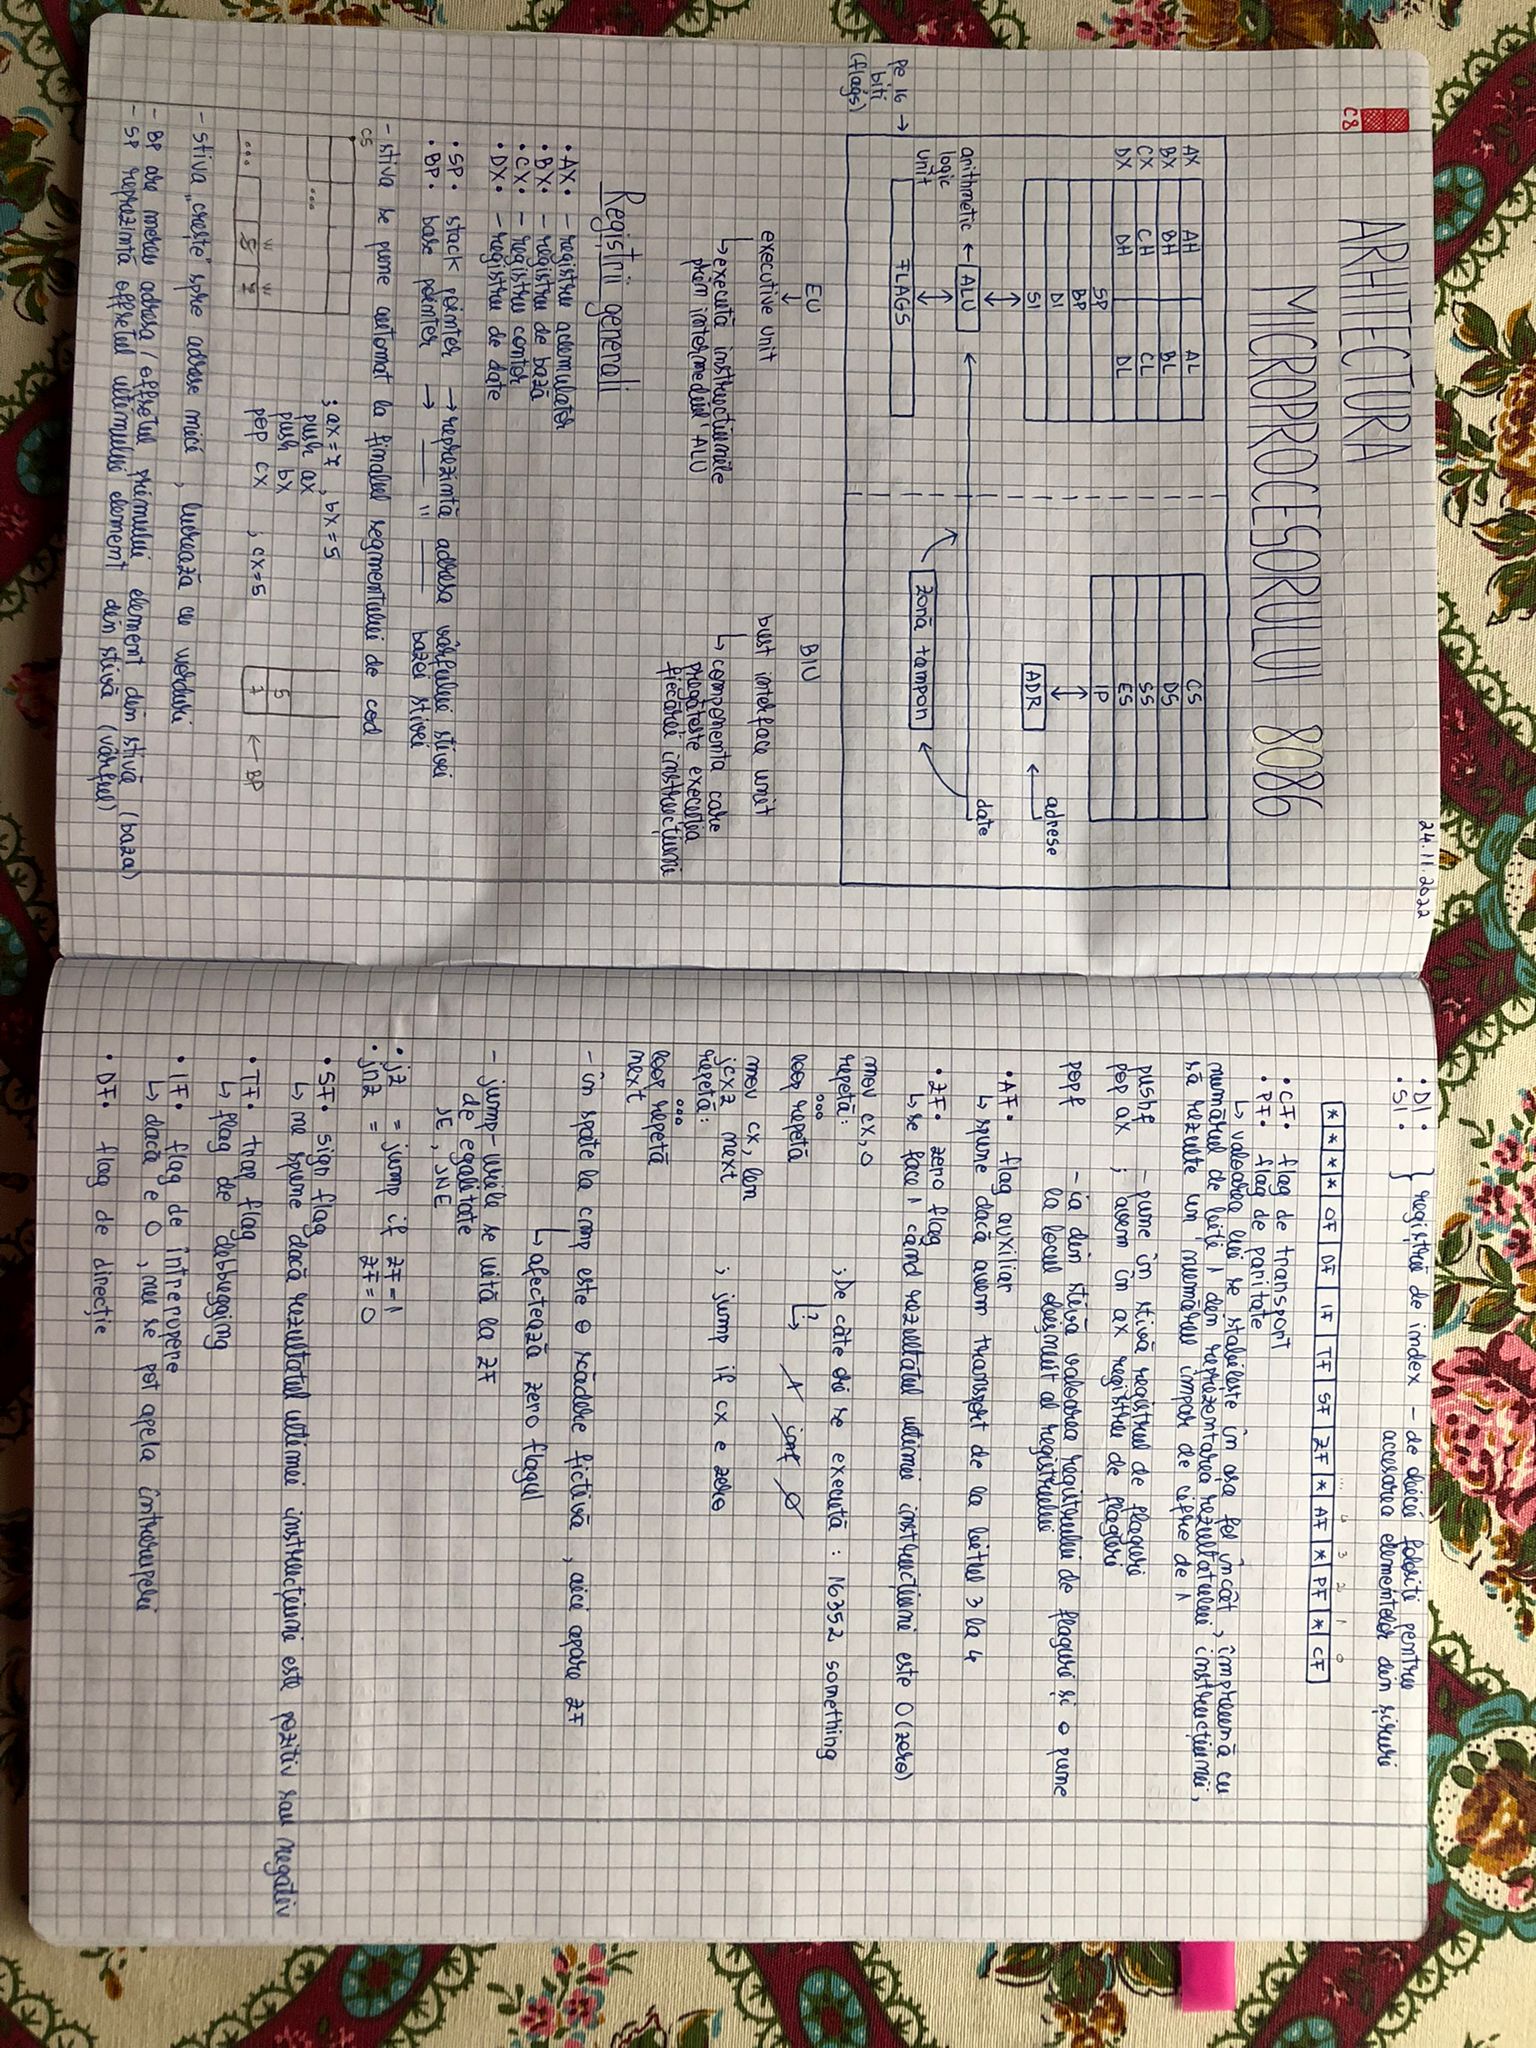 24.11.2022
C8
ARHITECTURA
MICROPROCESORULUI 8086
AX AH AL
BX BH BL
CX CH CL
DX DH DL
SP
BP
DI
SI
arithmetic ← ALU
logic
unit
pe 16 → FLAGS
biți
(flags)
CS
DS
SS
ES
IP
ADR ← adrese
date
zonă tampon
EU
executive unit
↳ execută instrucțiunile
prin intermediul ALU
BIU
bust interface unit
↳ componenta care
pregătește execuția
fiecărei instrucțiuni
Regiștrii generali
• AX • – registru acumulator
• BX • – registru de bază
• CX • – registru contor
• DX • – registru de date
• SP • stack pointer → reprezintă adresa vârfului stivei
• BP • base pointer → —— " —— bazei stivei
– stiva se pune automat la finalul segmentului de cod
CS
...
... 5 7
; ax=7 , bx=5
push ax
push bx
pop cx ; cx=5
5
7 ← BP
– stiva „crește" spre adrese mici , lucrează cu worduri
– BP are mereu adresa / offsetul primului element din stivă (baza)
– SP reprezintă offsetul ultimului element din stivă (vârful)
• DI •
• SI •
} regiștrii de index – de obicei folosiți pentru
accesarea elementelor din șiruri
... 4 3 2 1 0
* * * * OF DF IF TF SF ZF * AF * PF * CF
• CF • flag de transport
• PF • flag de paritate
↳ valoarea lui se stabilește în așa fel încât , împreună cu
numărul de biți 1 din reprezentarea rezultatului instrucțiunii,
să rezulte un număr impar de cifre de 1
pushf – pune în stivă registrul de flaguri
pop ax ; avem în ax registru de flaguri
popf – ia din stivă valoarea registrului de flaguri și o pune
la locul obișnuit al registrului
• AF • flag auxiliar
↳ spune dacă avem transport de la bitul 3 la 4
• ZF • zero flag
↳ se face 1 când rezultatul ultimei instrucțiuni este 0 (zero)
mov cx, 0
repetă: ; De câte ori se execută : 16352 something
ooo
loop repetă ? ↳ 1 inf 0
mov cx, len
jcxz next ; jump if cx e zero
repetă:
ooo
loop repetă
next
– în spate la cmp este o scădere fictivă , aici apare ZF
↳ afectează zero flagul
– jump-urile se uită la ZF
de egalitate
JE , JNE
• jz = jump if ZF=1
• jnz = ZF=0
• SF • sign flag
↳ ne spune dacă rezultatul ultimei instrucțiuni este pozitiv sau negativ
• TF • trap flag
↳ flag de debbugging
• IF • flag de întrerupere
↳ dacă e 0 , nu se pot apela întreruperi
• DF • flag de direcție